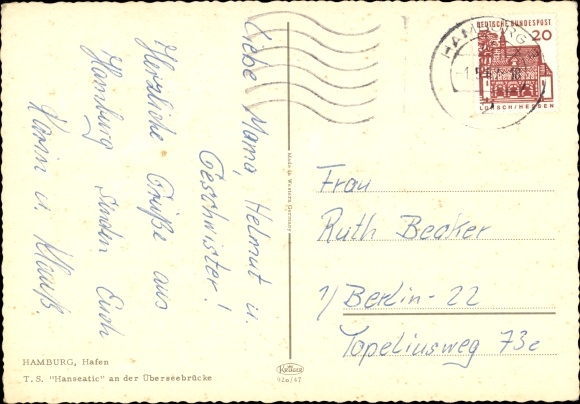 Liebe Mama, Helmut u.
Geschwister!
Herzliche Grüße aus
Hamburg senden Euch
Karin u. Klauß.
HAMBURG, Hafen
T. S. "Hanseatic" an der Überseebrücke
Made in Western Germany
Krüger
920/47
HAMBURG
DEUTSCHE BUNDESPOST
20
LORSCH/HESSEN
Frau
Ruth Becker
1/Berlin-22
Topeliusweg 73c